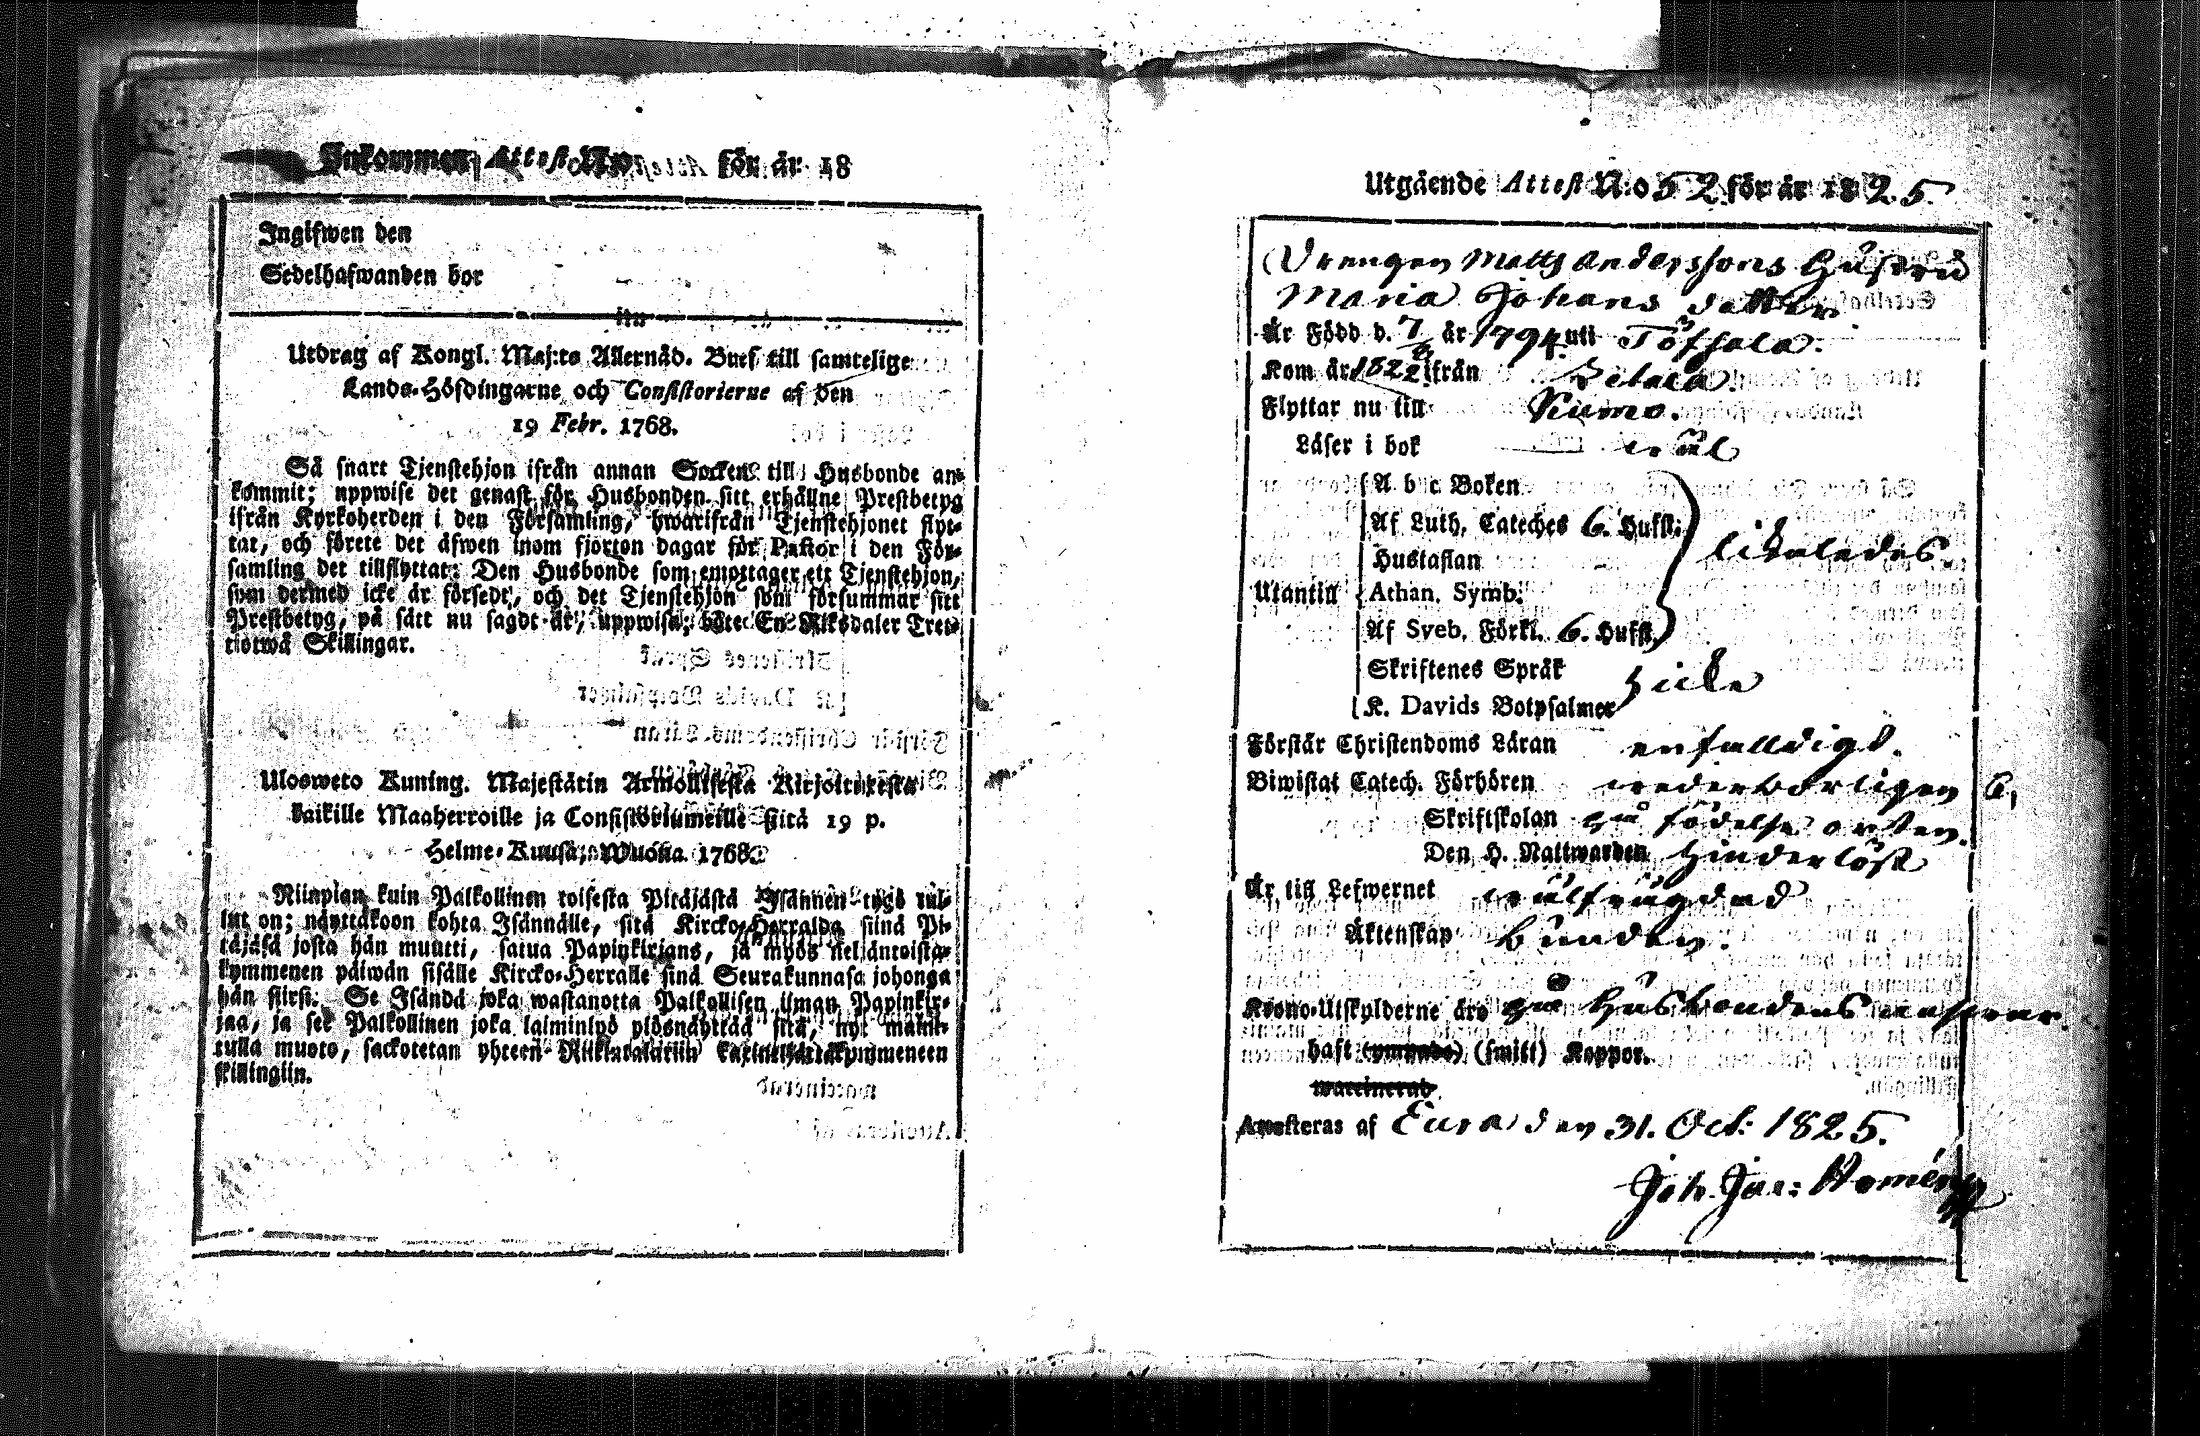 Inkommen Attest N:o för år 18
Ingifwen den
Sedelhafwanden bor
Utdrag af Kongl. Maj:ts Allernåd. Bref till samtelige
Lands-Höfdingarne och Consistorierne af den
19 Febr. 1768.
Så snart Tjenstehjon ifrån annan Socken till Husbonde an-
kommit; uppwise det genast för Husbonden sitt erhållne Prestbetyg
ifrån Kyrkoherden i den Församling, hwarifrån Tjenstehjonet flyt-
tat, och förete det äfwen inom fjorton dagar för Pastor i den För-
samling det tillflyttat: Den Husbonde som emottager ett Tjenstehjon,
som dermed icke är försedt, och det Tjenstehjon som försummar sitt
Prestbetyg, på sätt nu sagdt är, uppwisa; böte En Riksdaler Tret-
tiotwå Skillingar.
Ulosweto Kuning. Majestätin Armollisesta Kirjoituxesta
kaikille Maaherroille ja Consistoriumeille siitä 19 p.
Helme-Kuusa, Wuonna 1768.
Niinpian kuin Palkollinen toisesta Pitäjästä Isännen tygö tul-
lut on; näyttäkoon kohta Isännälle, sitä Kircko-Herralda siinä Pi-
täjäsä josta hän muutti, satua Papinkirjans, ja myös neljäntoista-
kymmenen päiwän sisälle Kircko-Herralle sinä Seurakunnasa johonga
hän siirsi. Se Isändä joka wastanotta Palkollisen ilman Papinkir-
jaa, ja see Palkollinen joka laiminlyö ylösnäyttää sitä, nyt maini-
tulla muoto, sackotetan yhteen Riikintalariin kaxineljättäkymmeneen
skillingiin.
Utgående Attest N:o 52 för år 1825.
Drengen Matts Anderssons Hustru
Maria Johans dotter
Är Född d. 7/8 år 1794 uti Töfsala.
Kom år 1822 ifrån
Flyttar nu till Kumo.
Läser i bok wäl
A b c Boken
Af Luth. Cateches 6. Hufst: likaledes
Hustaflan
Utantill Athan. Symb.
Af Sveb. Förkl. 6. Hufst.
Skriftenes Språk icke
K. Davids Botpsalmer
Förstår Christendoms Läran enfalldigt.
Biwistat Catech. Förhören wederbörligen
Skriftskolan på födelse orten.
Den H. Nattwarden hinderlöst
Är till Lefwernet wälfrägdad
Äktenskap bunden.
Krono-Utskylderne äro på Husbondens answar.
haft (ympade) (smitt) Koppor.
waccinerad
Attesteras af Eura den 31. Oct: 1825.
Joh. Jac: Homén